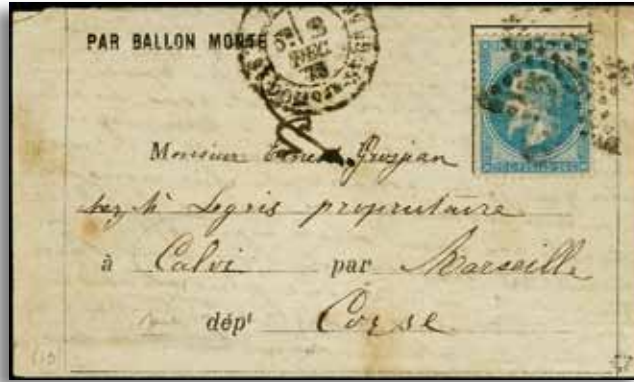 PAR BALLON MONTÉ
5E 3
DEC.
Monsieur Ernest Grosjean
chez Mr Legris propriétaire
à Calvi par Marseille
dépt Corse